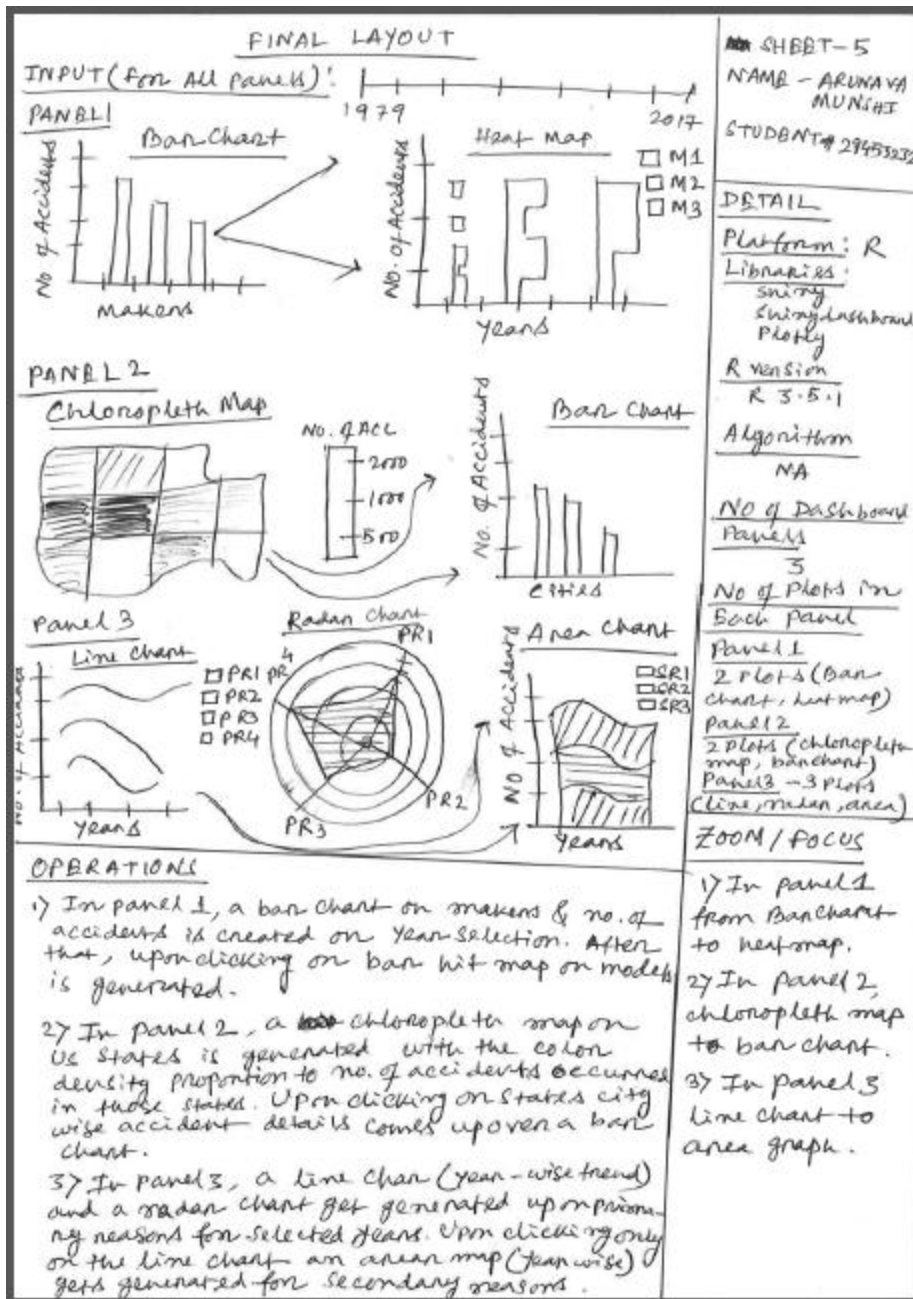 FINAL LAYOUT
INPUT (for All Panels):
1979
2017
PANEL 1
Bar Chart
No of Accidents
Makers
Heat Map
No. of Accidents
Years
M1
M2
M3
PANEL 2
Chloropleth Map
No. of Acc
2000
1000
500
Bar Chart
No. of Accidents
Cities
Panel 3
Line Chart
No. of Accidents
Years
PR1
PR2
PR3
PR4
Radar Chart
PR1
PR
4
PR2
PR3
Area Chart
No of Accidents
Years
SR1
SR2
SR3
OPERATIONS
1) In panel 1, a bar chart on makers & no. of
accidents is created on Year selection. After
that, upon clicking on bar hit map on models
is generated.
2) In panel 2, a chloropleth map on
US States is generated with the color
density proportion to no. of accidents occurred
in those states. Upon clicking on states city
wise accident details comes up over a bar
chart.
3) In panel 3, a line char (year-wise trend)
and a radar chart get generated upon prima-
ry reasons for selected years. Upon clicking only
on the line chart an arear map (year wise)
gets generated for secondary reasons.
SHEET-5
NAME - ARUNAVA
MUNSHI
STUDENT# 29453232
DETAIL
Platform: R
Libraries:
shiny
shinydashboard
Plotly
R version
R 3.5.1
Algorithm
NA
No of Dashboard
Panels
3
No of Plots in
Each Panel
Panel 1
2 Plots (Bar
chart, heatmap)
Panel 2
2 Plots (chloropleth
map, barchart)
Panel 3 - 3 Plots
(line, radar, area)
ZOOM / FOCUS
1) In panel 1
from Bar Chart
to heatmap.
2) In panel 2,
chloropleth map
to bar chart.
3) In panel 3
line chart to
area graph.